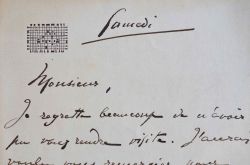 Samedi
Monsieur,
Je regrette beaucoup de n'avoir
pu vous rendre visite. J'aurais
voulu vous remercier